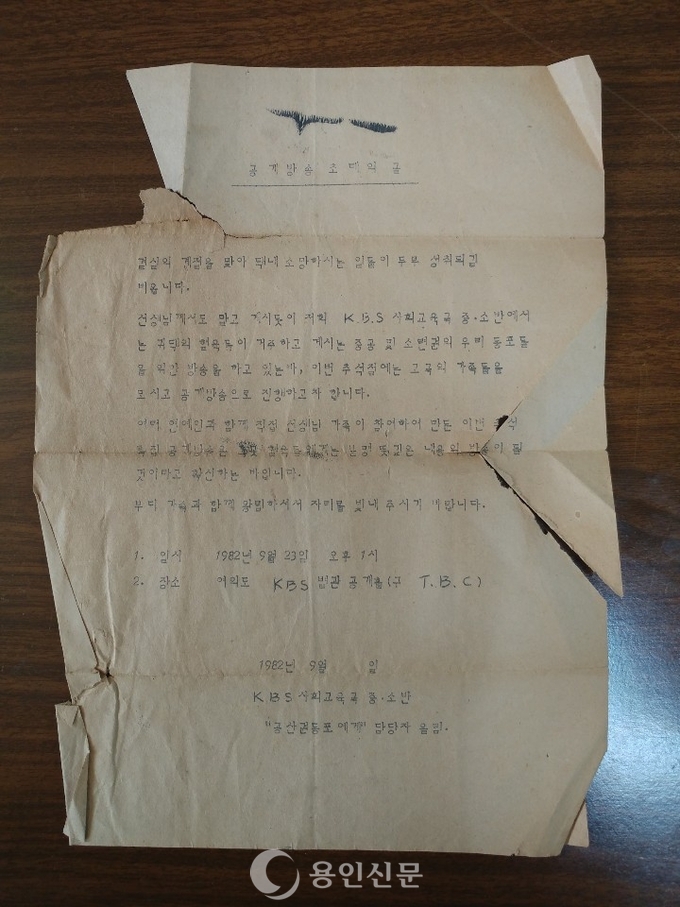 공개방송 초대의 글
결실의 계절을 맞아 댁내 소망하시는 일들이 두루 성취되길
비옵니다.
선생님께서도 알고 계시듯이 저희 K.B.S 사회교육국 중·소반에서
는 귀댁의 혈육들이 거주하고 계시는 중공 및 소련권의 우리 동포들
을 위한 방송을 하고 있는바, 이번 추석절에는 고국의 가족들을
모시고 공개방송으로 진행하고자 합니다.
여러 연예인과 함께 직접 선생님 가족이 참여하여 만든 이번 추석
특집 공개방송은 혈육들에게는 분명 뜻깊은 내용의 방송이 될
것이라고 확신하는 바입니다.
부디 가족과 함께 왕림하셔서 자리를 빛내 주시기 바랍니다.
1. 일시 1982년 9월 23일 오후 1시
2. 장소 여의도 KBS 별관 공개홀(구 T.B.C)
1982년 9월 일
KBS 사회교육국 중·소반
"공산권동포에게" 담당자 올림.
용인신문